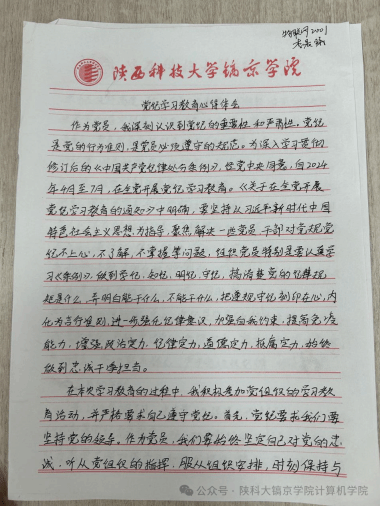 物联网2001
陕西科技大学镐京学院
党纪学习教育心得体会
作为党员，我深刻认识到党纪的重要性和严肃性。党纪
是党的行为准则，是党员必须遵守的规范。为深入学习贯彻
修订后的《中国共产党纪律处分条例》，经党中央同意，自2024
年4月至7月，在全党开展党纪学习教育。《关于在全党开展
党纪学习教育的通知》中明确，要坚持以习近平新时代中国
特色社会主义思想为指导，聚焦解决一些党员干部对党规党
纪不上心、不了解、不掌握等问题，组织党员特别是要认真学
习《条例》，做到学纪、知纪、明纪、守纪，搞清楚党的纪律规
矩是什么，弄明白能干什么、不能干什么，把遵规守纪刻印在心，内
化为言行准则，进一步强化纪律意识、加强自我约束、提高免疫
能力，增强政治定力、纪律定力、道德定力、抵腐定力，始终
做到忠诚干净担当。
在本次学习教育的过程中，我积极参加党组织的学习教
育活动，并严格要求自己遵守党纪。首先，党纪要求我们要
坚持党的领导。作为党员，我们要始终坚定自己对党的忠
诚，听从党组织的指挥，服从组织安排，时刻保持与
公众号·陕科大镐京学院计算机学院